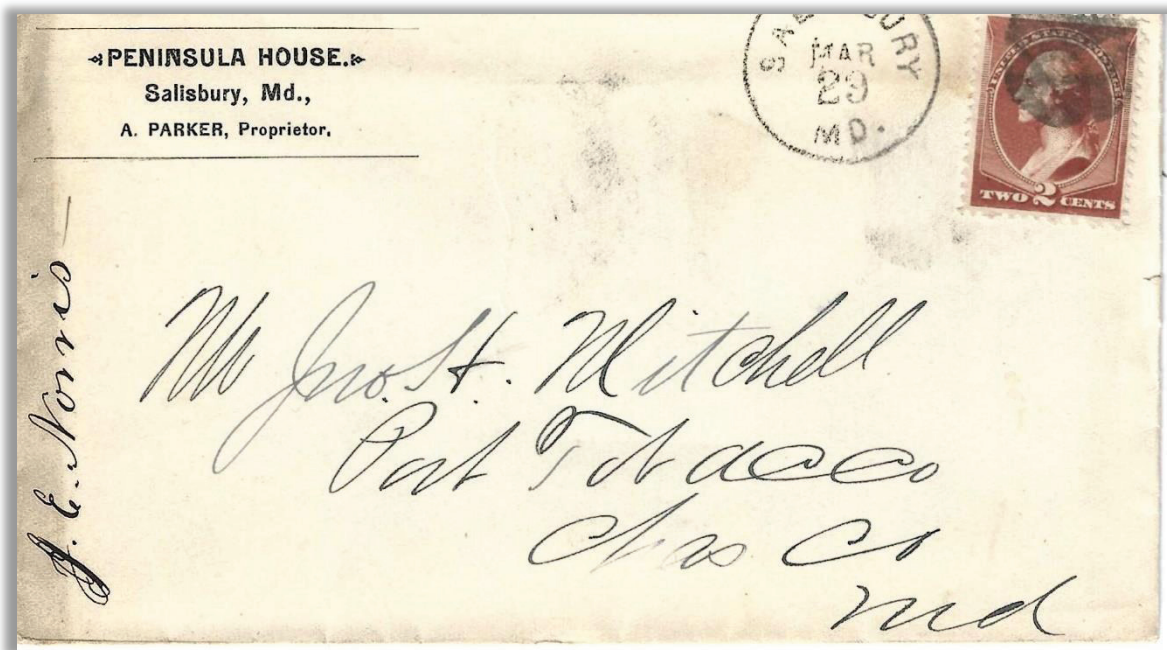 PENINSULA HOUSE.
Salisbury, Md.,
A. PARKER, Proprietor.
SALISBURY
MAR
29
MD.
UNITED STATES POSTAGE
TWO 2 CENTS
J. E. Norris
Mr Jno. H. Mitchell
Port Tobacco
Chas Co
Md